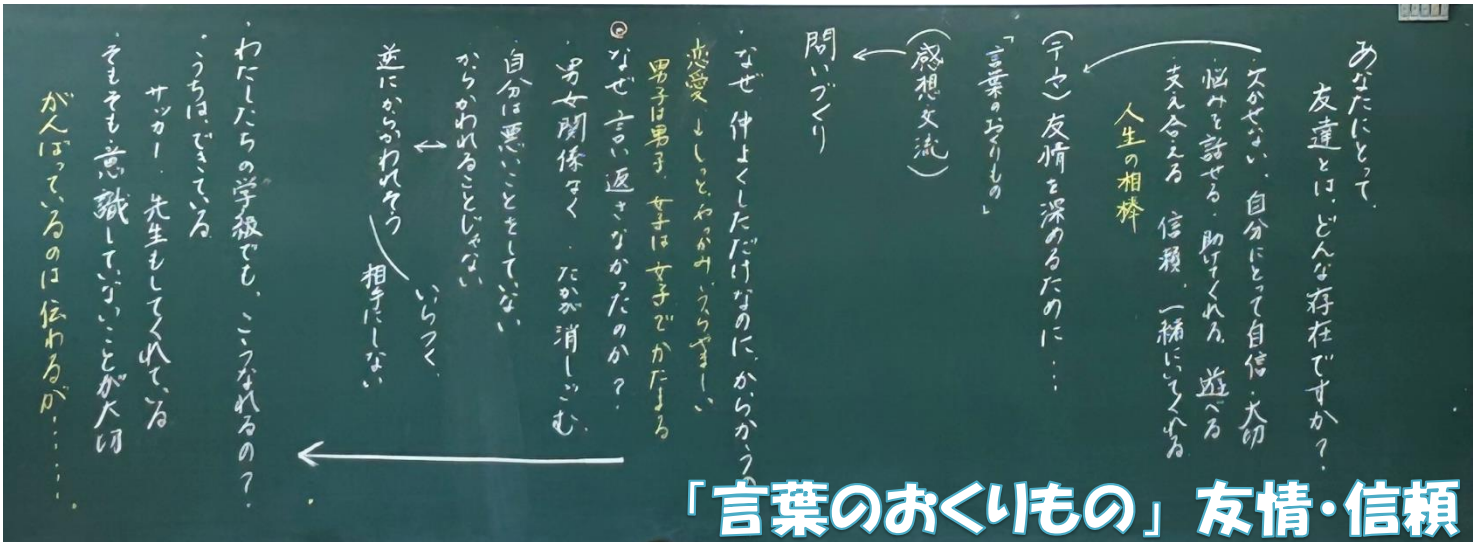 あなたにとって、
友達とは、どんな存在ですか？
・欠かせない、自分にとって自信・大切
・悩みを話せる・助けてくれる、遊べる
・支え合える　信頼、一緒にいてくれる
人生の相棒
(テーマ)友情を深めるために…
「言葉のおくりもの」
(感想交流)
問いづくり
・なぜ仲よくしただけなのに、からかうの
恋愛→しっと、わっかみ、いうらやましい
男子は男子、女子は女子でかたまる
◎なぜ言い返さなかったのか？
・男女関係なく　・たかが消しごむ
自分は悪いことをしていない
からかわれることじゃない
↔
逆にからかわれそう
いらつく、
相手にしない
・わたしたちの学級でも、こうなれるの？
・うちは、できている
サッカー・先生もしてくれている
・そもそも意識していないことが大切
がんばっているのは伝わるが……。
「言葉のおくりもの」友情・信頼